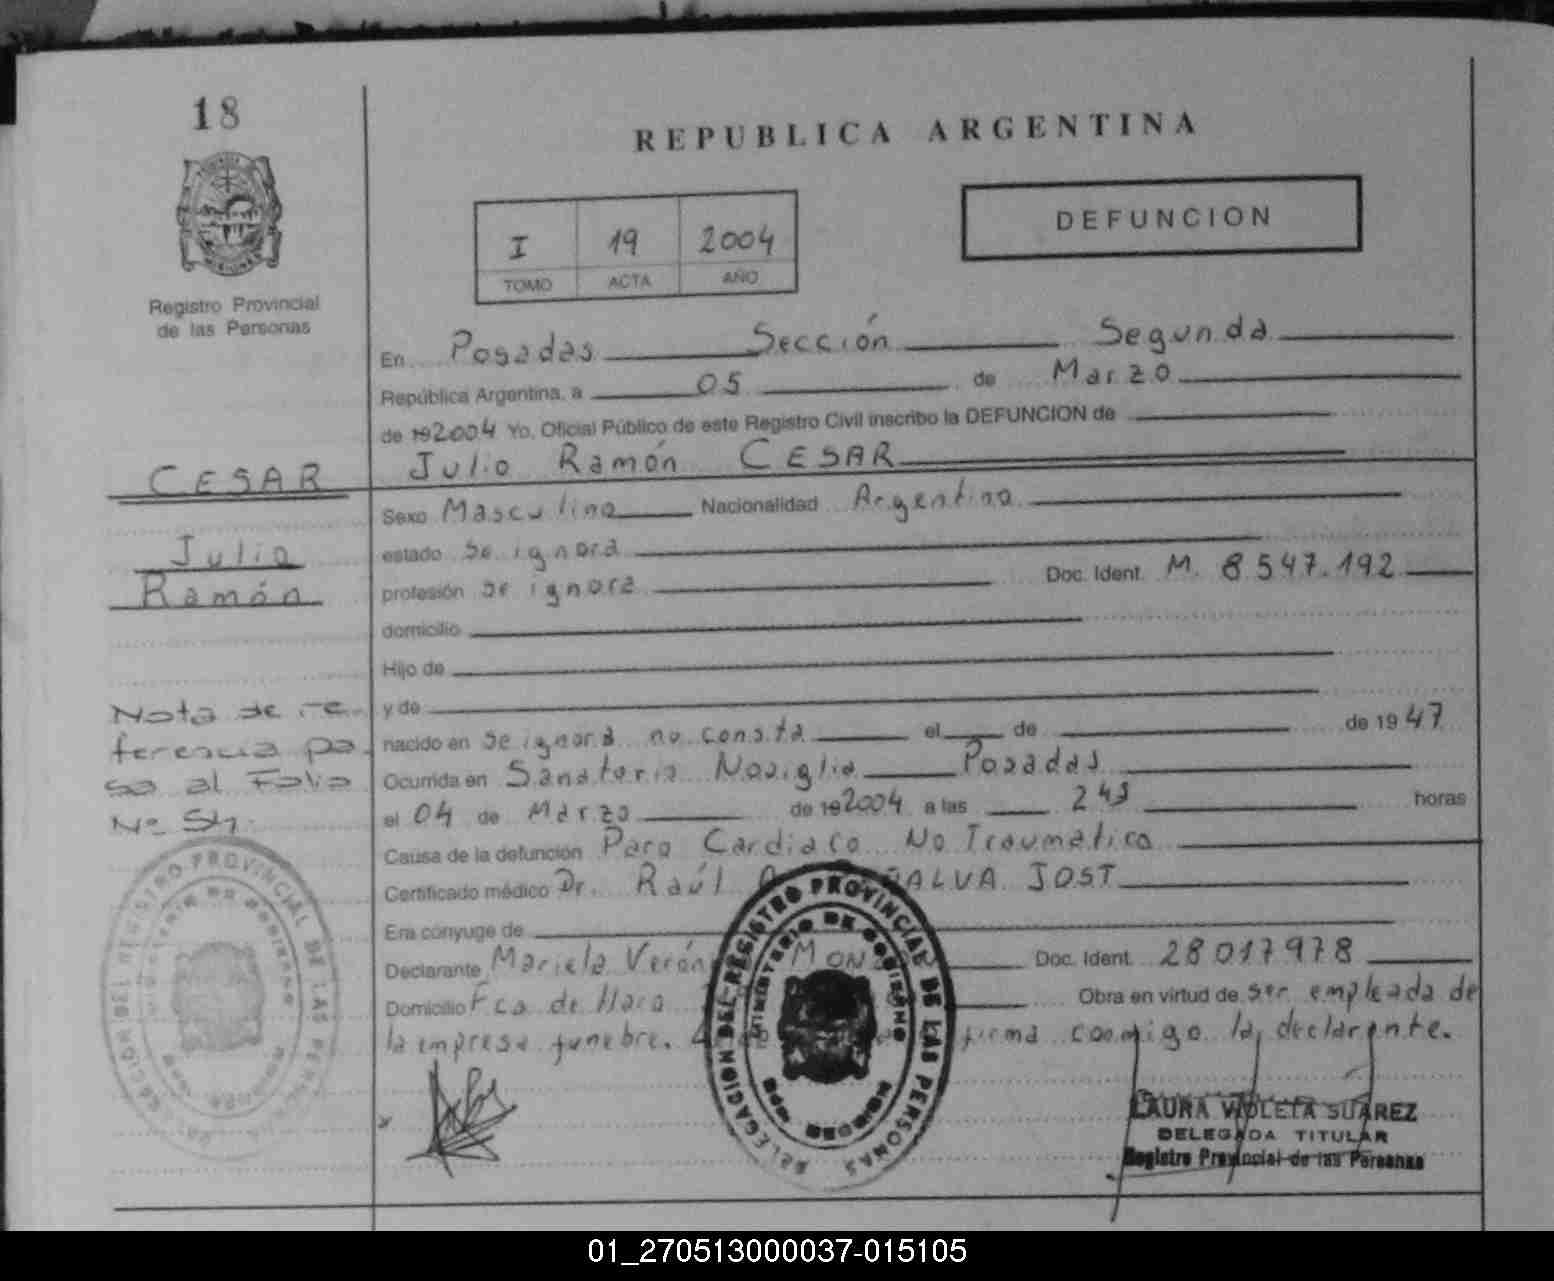 18
REPUBLICA ARGENTINA
MISIONES
Registro Provincial
de las Personas
I 19 2004
TOMO ACTA AÑO
DEFUNCION
En Posadas Sección Segunda
República Argentina, a 05 de Marzo
de 192004 Yo, Oficial Público de este Registro Civil inscribo la DEFUNCION de
CESAR
Julio Ramón CESAR
Sexo Masculino Nacionalidad Argentina
Julio
estado se ignora
Ramón
profesión se ignora Doc. Ident. M. 8.547.192
domicilio
Hijo de
Nota de re
y de
ferencia pa
nacido en se ignora no consta el de de 1947
sa al Folio
Ocurrida en Sanatorio Nosiglia Posadas
Nº 54.
el 04 de Marzo de 192004 a las 245 horas
Causa de la defunción Paro Cardiaco No Traumatico
Certificado médico Dr. Raúl ALVA JOST
Era cónyuge de
Declarante Mariela Verón Doc. Ident. 28017978
Domicilio Fco de Haro Obra en virtud de ser empleada de
la empresa funebre. firma conmigo la declarante.
DELEGACION DEL REGISTRO PROVINCIAL DE LAS PERSONAS
MINISTERIO DE GOBIERNO
LAURA VIOLETA SUAREZ
DELEGADA TITULAR
Registro Provincial de las Personas
01_270513000037-015105